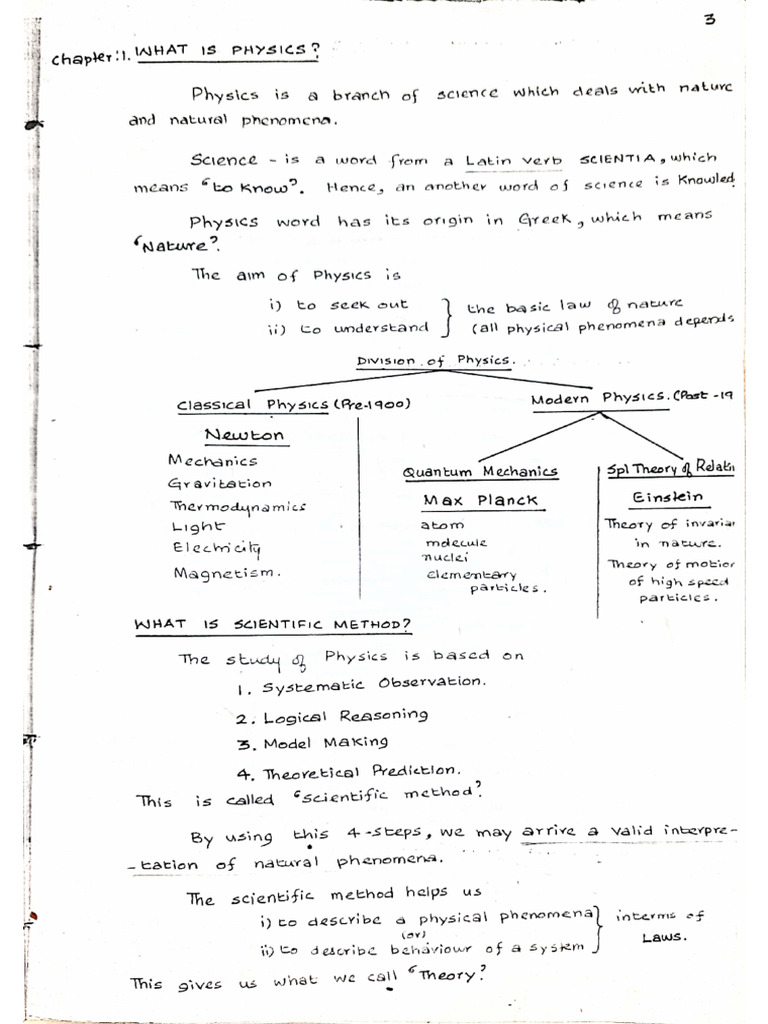 3
Chapter:1. WHAT IS PHYSICS?
Physics is a branch of science which deals with nature
and natural phenomena.
Science - is a word from a Latin verb SCIENTIA, which
means "to know". Hence, an another word of science is Knowled
Physics word has its origin in Greek, which means
"Nature".
The aim of Physics is
i) to seek out } the basic law of nature
ii) to understand (all physical phenomena depends
Division of Physics.
Classical Physics (Pre-1900) Modern Physics. (Post -19
Newton
Mechanics Quantum Mechanics Spl Theory of Relati
Gravitation Max Planck Einstein
Thermodynamics atom Theory of invarian
Light molecule in nature.
Electricity nuclei Theory of motion
Magnetism. elementary of high speed
particles. particles.
WHAT IS SCIENTIFIC METHOD?
The study of Physics is based on
1. Systematic Observation.
2. Logical Reasoning
3. Model Making
4. Theoretical Prediction.
This is called "scientific method".
By using this 4-steps, we may arrive a valid interpre-
-tation of natural phenomena.
The scientific method helps us
i) to describe a physical phenomena } interms of
(or)
ii) to describe behaviour of a system Laws.
This gives us what we call "Theory".